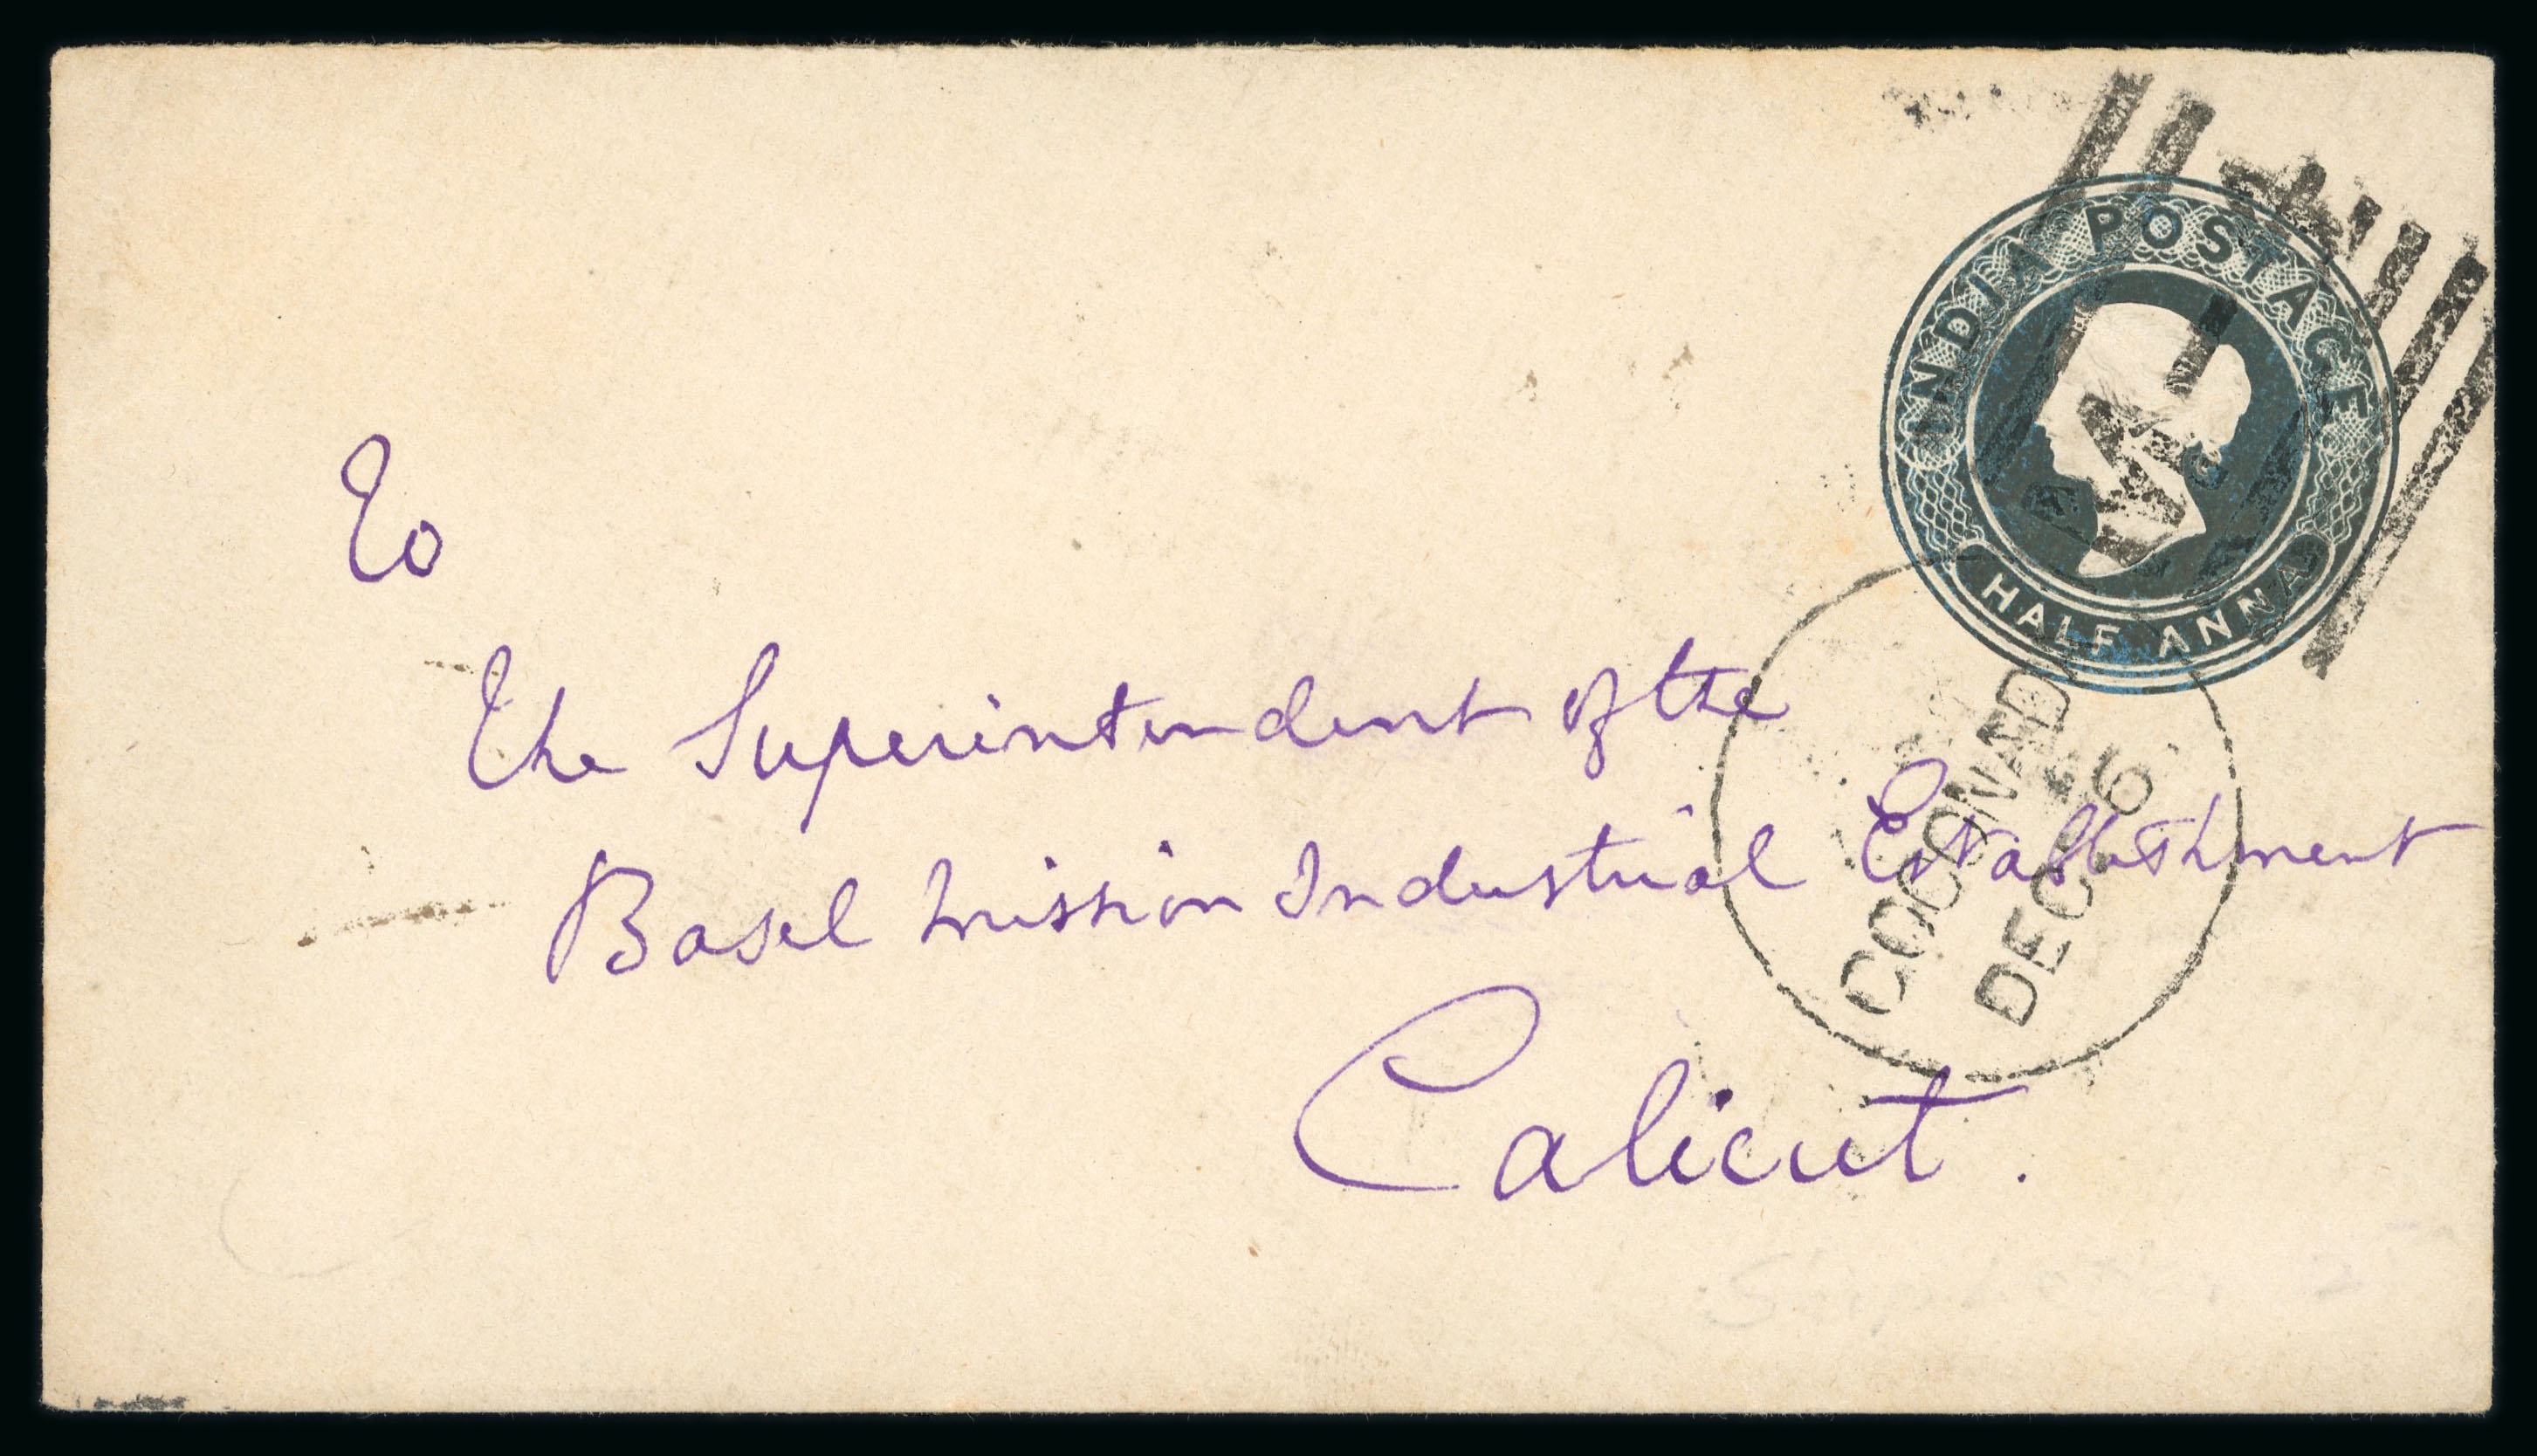 INDIA POSTAGE
HALF ANNA
COCONAD
DEC 6
To
The Superintendent of the
Basel Mission Industrial Establishment
Calicut.